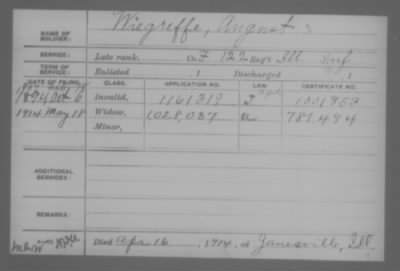 NAME OF SOLDIER: Wiegreffe, August
SERVICE: Late rank, Co. F 122 Reg't Ill Inf
TERM OF SERVICE: Enlisted , 1 Discharged , 1
DATE OF FILING. CLASS. APPLICATION NO. LAW. CERTIFICATE NO.
Invalid, 1161319
1914 May 18 Widow, 1,028,037 781494
Minor,
ADDITIONAL SERVICES:
REMARKS:
Died Apr 16, 1914, at Janesville, Ill.